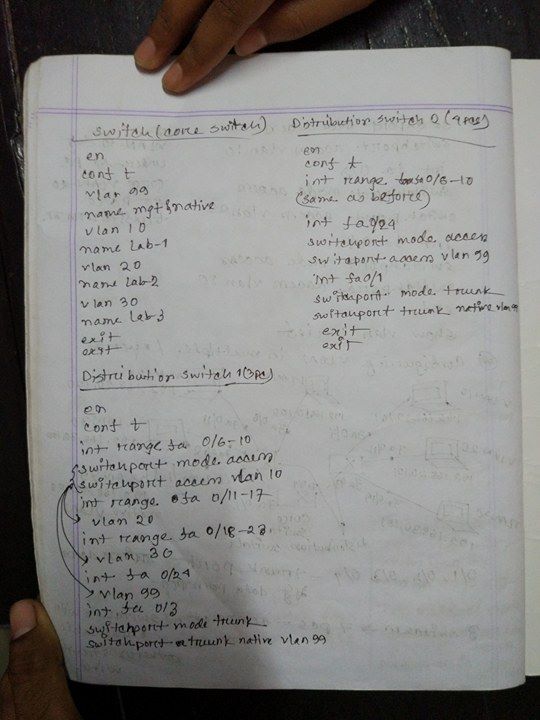 switch (core switch)
en
conf t
vlan 99
name mgt&native
vlan 10
name Lab-1
vlan 20
name Lab-2
vlan 30
name Lab-3
exit
exit
Distribution switch 1 (3pc)
en
conf t
int range fa 0/6-10
switchport mode access
switchport access vlan 10
int range fa 0/11-17
vlan 20
int range fa 0/18-23
vlan 30
int fa 0/24
vlan 99
int fa 0/3
switchport mode trunk
switchport trunk native vlan 99
Distribution switch 2 (4pcs)
en
conf t
int range fa 0/6-10
(same as before)
int fa0/24
switchport mode access
switchport access vlan 99
int fa0/1
switchport mode trunk
switchport trunk native vlan 99
exit
exit